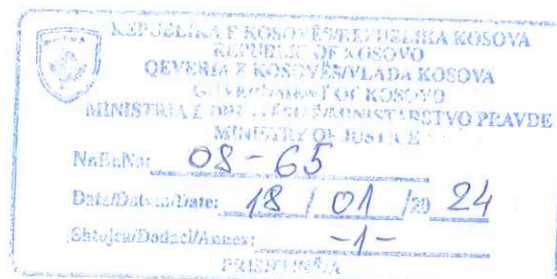 REPUBLIKA E KOSOVËS/REPUBLIKA KOSOVA
REPUBLIC OF KOSOVO
QEVERIA E KOSOVËS/VLADA KOSOVA
GOVERNMENT OF KOSOVO
MINISTRIA E DREJTËSISË/MINISTARSTVO PRAVDE
MINISTRY OF JUSTICE
Nr/Br/No: 08-65
Data/Datum/Date: 18 / 01 /20 24
Shtojca/Dodaci/Annex: -1-
PRISHTINË/A